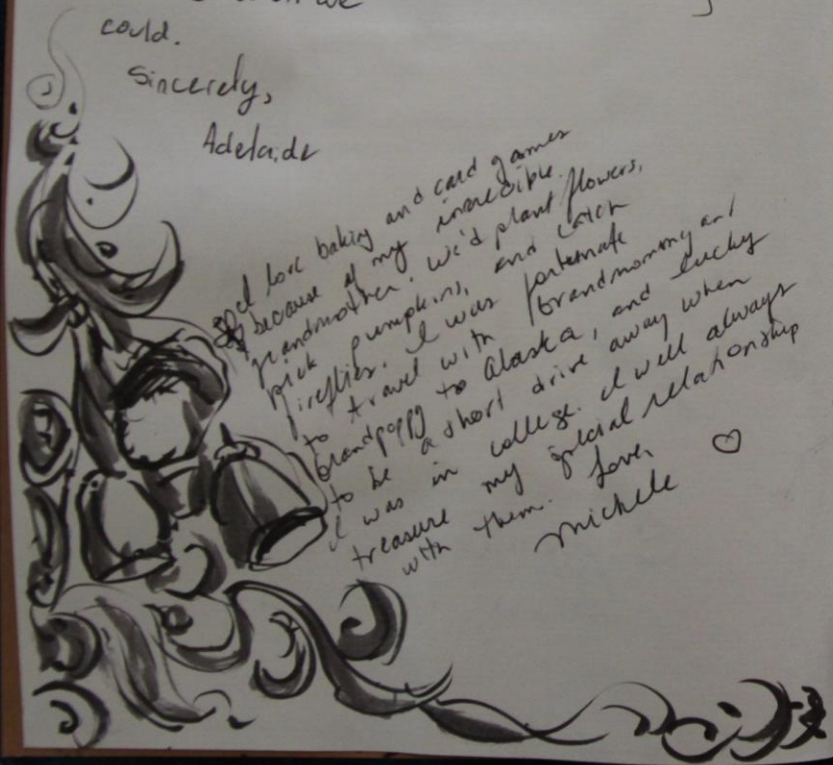 we
could.
Sincerely,
Adelaide
I love baking and card games
because of my incredible
grandmother. We'd plant flowers,
pick pumpkins, and catch
fireflies. I was fortunate
to travel with Grandmommy and
Grandpappy to Alaska, and lucky
to be a short drive away when
I was in college. I will always
treasure my special relationship
with them. Love,
Michele ♡